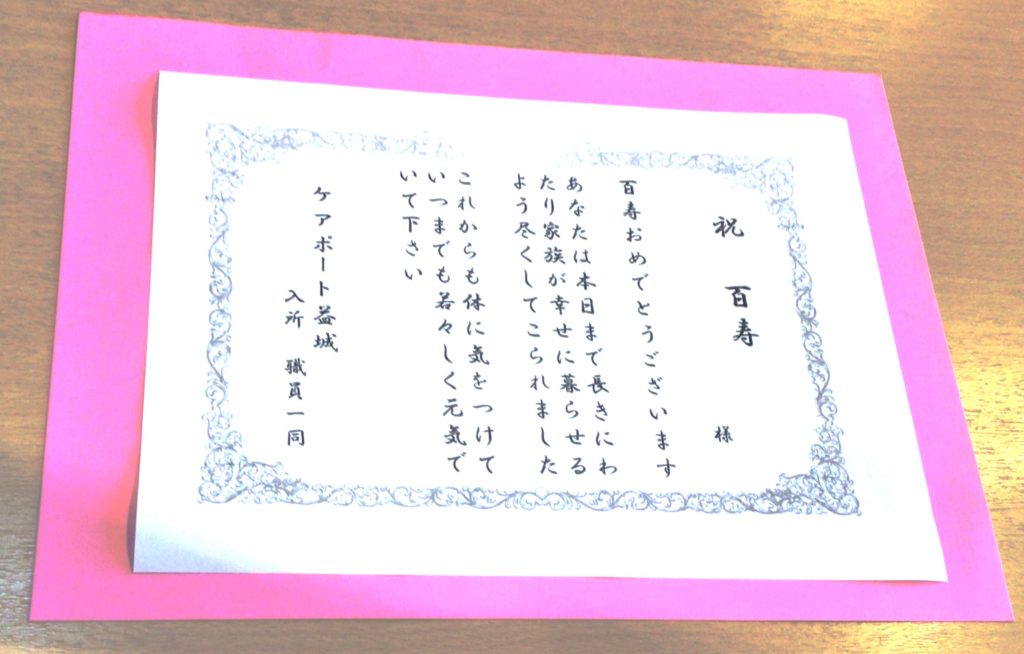 祝 百寿
様
百寿おめでとうございます
あなたは本日まで長きにわ
たり家族が幸せに暮らせる
よう尽くしてこられました
これからも体に気をつけて
いつまでも若々しく元気で
いて下さい
ケアポート益城
入所 職員一同